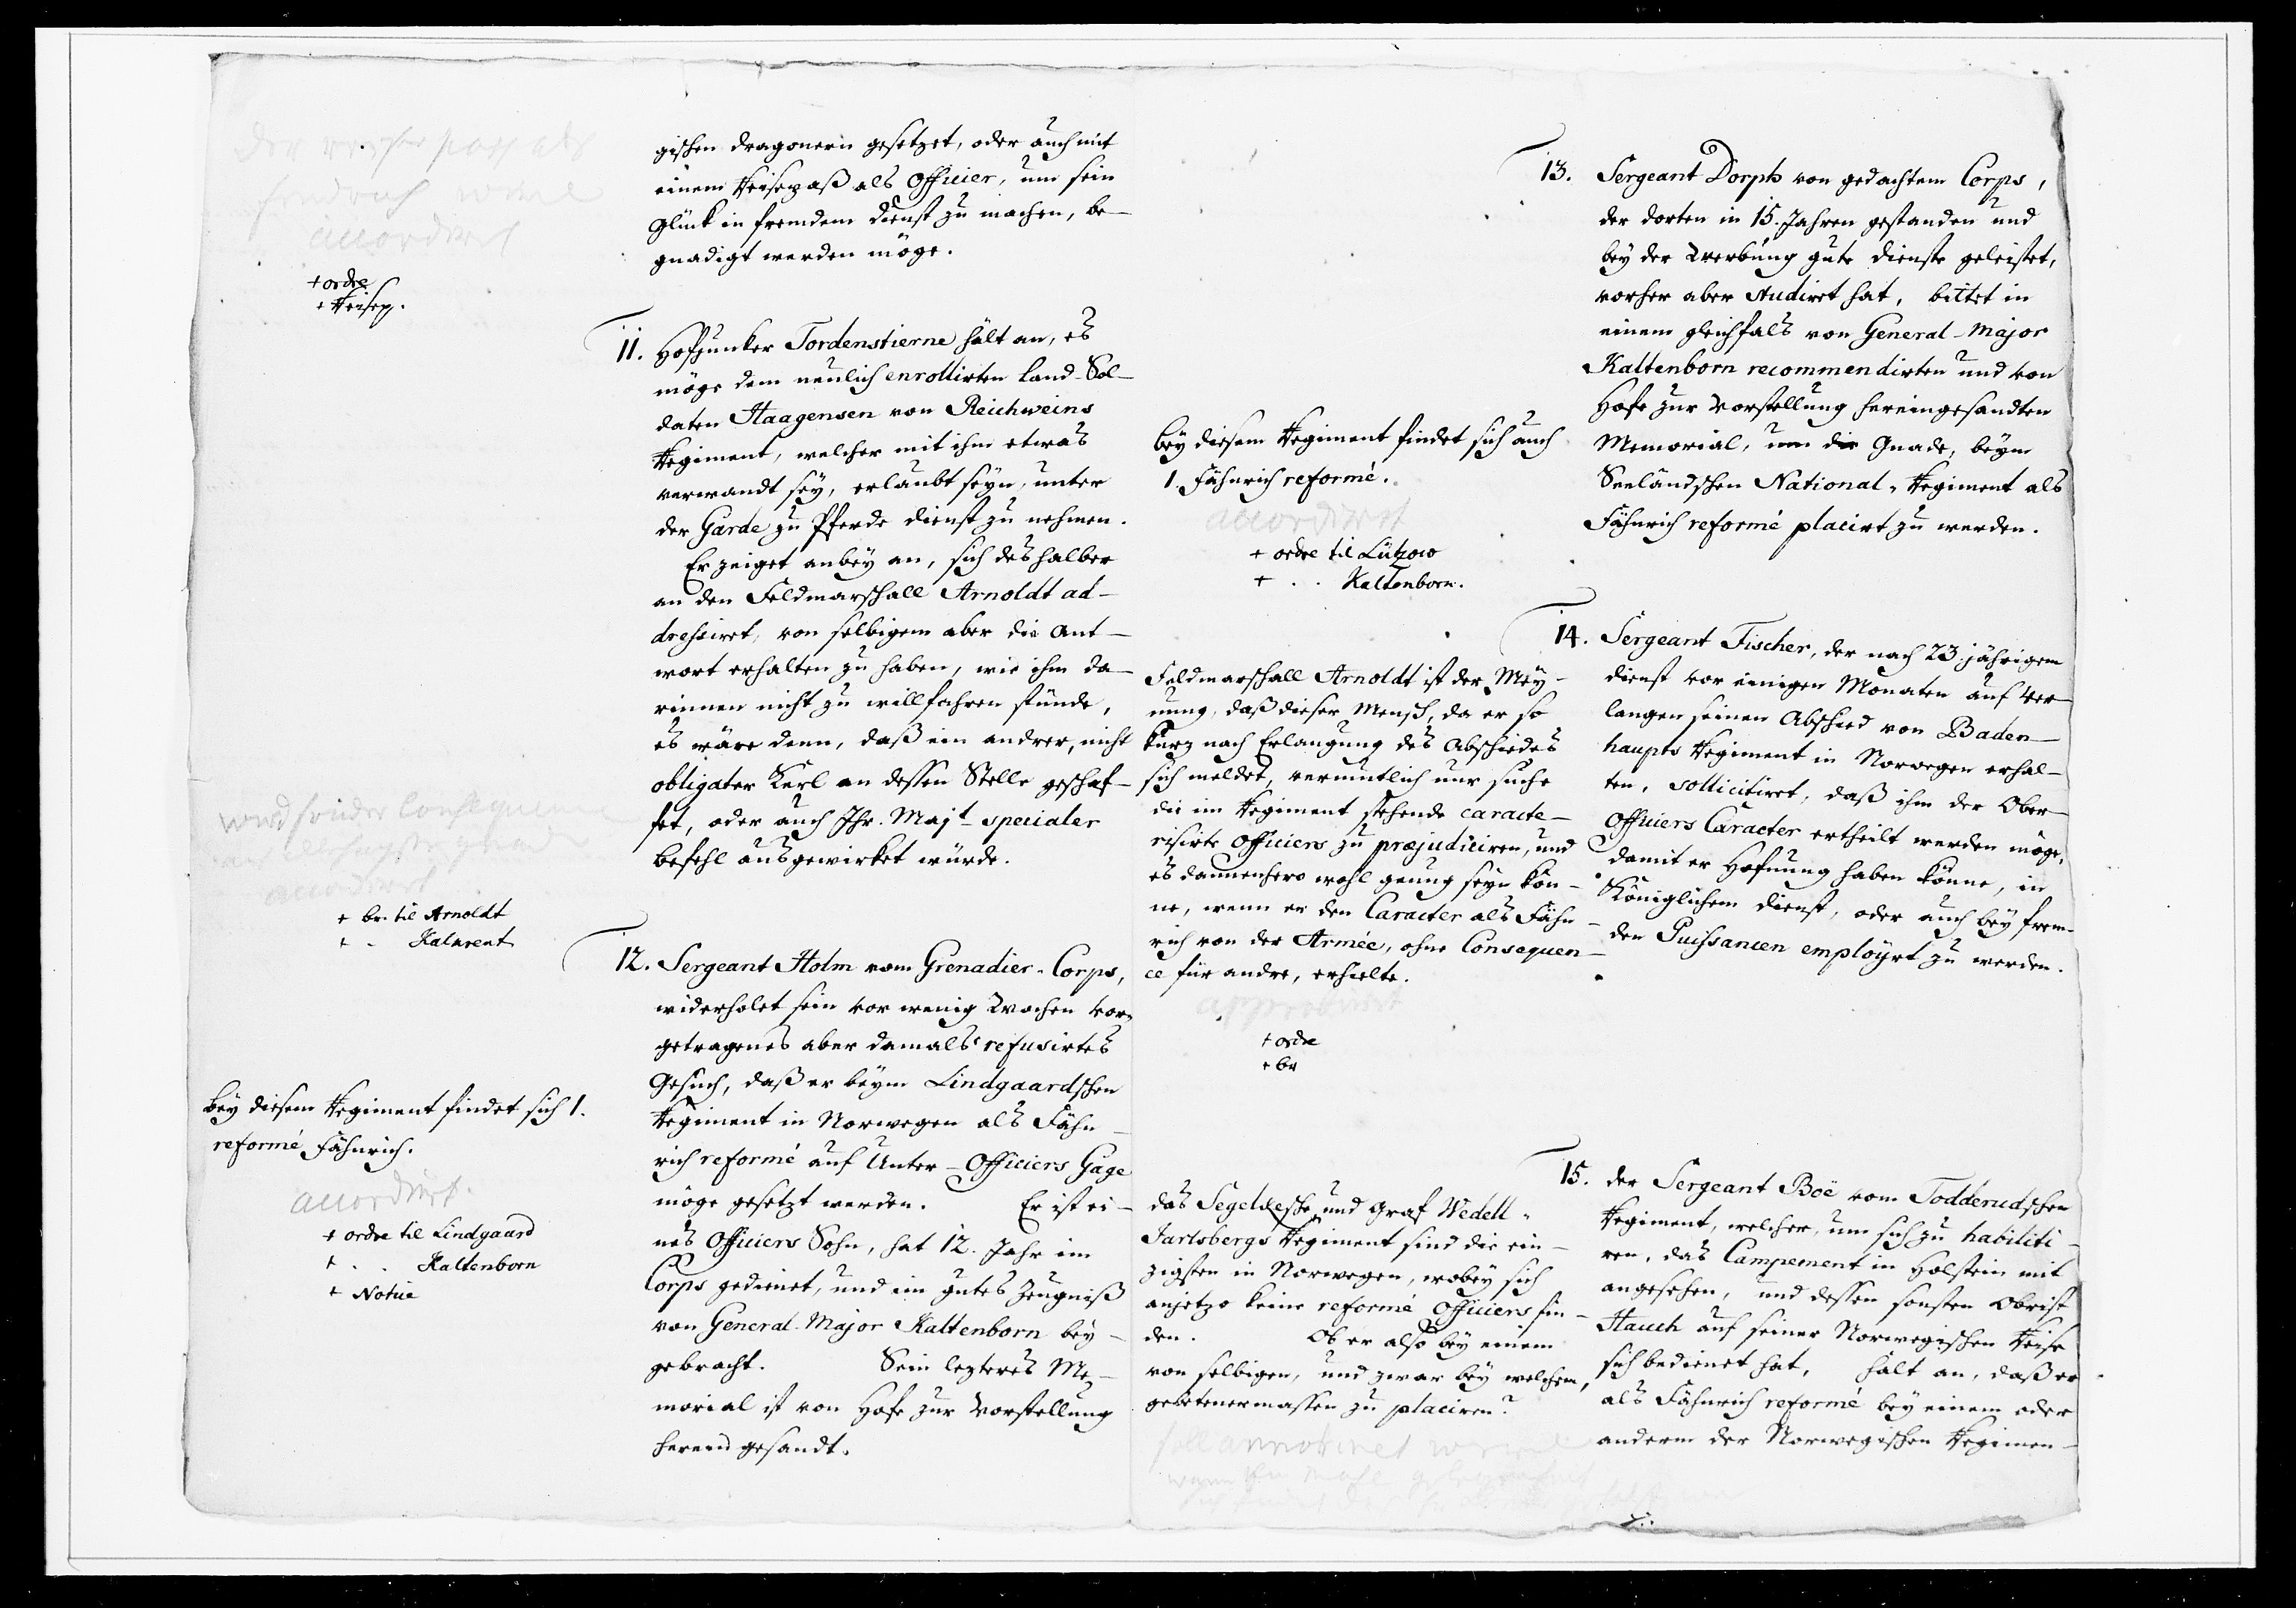 gischen dragonern gesetzet, oder auch mit
einem Reisepaß als Officier, um sein
Glück in fremdem dienst zu machen, be-
gnadigt werden möge.
der reise pass als
fendrich
accordiret
+ ordre
+ Reisep.
11. Hofjunker Tordenstierne hält an, es
möge dem neulich enrollirten Land-Sol-
daten Haagensen von Reichweins
Regiment, welcher mit ihm etwas
verwandt sey, erlaubt seyn, unter
der Garde zu Pferde dienst zu nehmen.
Er zeiget anbey an, sich deshalber
an den Feldmarschall Arnoldt ad-
dressiret, von selbigem aber die Ant-
wort erhalten zu haben, wie ihm da-
rinnen nicht zu willfahren stünde,
es wäre denn, daß ein andrer, nicht
obligater Kerl an dessen Stelle geschaf-
fet, oder auch Ihr. Majt specialer
befehl ausgewirket würde.
wird sonder Consequence
accordiret
+ br. til Arnoldt
+ -
12. Sergeant Holm vom Grenadier-Corps,
widerholet sein vor wenig Wochen vor-
getragenes aber damals refusirtes
Gesuch, daß er beym Lindgaardschen
Regiment in Norwegen als Fähn-
rich reformé auf Unter-Officiers Gage
möge gesetzt werden. Er ist ei-
nes Officiers Sohn, hat 12. Jahr im
Corps gedienet, und ein gutes Zeugniß
von General-Major Kaltenborn bey-
gebracht. Sein lezteres Me-
morial ist von Hofe zur Vorstellung
herein gesandt.
bey diesem Regiment findet sich 1.
reformé Fähnrich.
accordirt.
+ ordre til Lindgaard
+ . . Kaltenborn
+ Notice
13. Sergeant Dorph von gedachtem Corps,
der dorten in 15. Jahren gestanden und
bey der Werbung gute dienste geleistet,
vorher aber studiret hat, bittet in
einem gleichfals von General-Major
Kaltenborn recommendirten und von
Hofe zur Vorstellung hereingesandten
Memorial, um die Gnade, beym
Seeländschen National-Regiment als
Fähnrich reformé placirt zu werden.
bey diesem Regiment findet sich auch
1. Fähnrich reformé.
accordiret
+ ordre til Lützow
+ . . Kaltenborn.
14. Sergeant Fischer, der nach 23 jährigem
dienst vor einigen Monaten auf Ver-
langen seinen Abschied von Baden-
haupts Regiment in Norwegen erhal-
ten, sollicitiret, daß ihm der Ober-
Officiers Caracter ertheilt werden möge,
damit er Hofnung haben könne, in
Königlichem dienst, oder auch bey frem-
den Puissancen employrt zu werden.
Feldmarschall Arnoldt ist der Mey-
nung, daß dieser Mensch, da er so
kurz nach Erlangung des Abschiedes
sich meldet, vermutlich nur suche
die im Regiment stehende caracte-
risirte Officiers zu præjudiciren, und
es dannenhero wohl genug seyn kön-
ne, wenn er den Caracter als Fähn-
rich von der Armée, ohne Consequen-
ce für andre, erhielte.
approbiret
+ ordre
+ br
15. der Sergeant Boë vom Todderudschen
Regiment, welcher, um sich zu habiliti-
ren, das Campement in Holstein mit
angesehen, und dessen sonsten Obrist
Hauch auf seiner Norwegischen Reise
sich bedienet hat, hält an, daß er
als Fähnrich reformé bey einem oder
anderm der Norwegischen Regimen-
das Segelckesche und Graf Wedell-
Jarlsbergs Regiment sind die ein-
zigsten in Norwegen, wobey sich
anjetzo keine reformé Officiers fin-
den. Ob er also bey einem
von selbigen, und zwar bey welchem,
gebetenermassen zu placiren?
soll annotiret